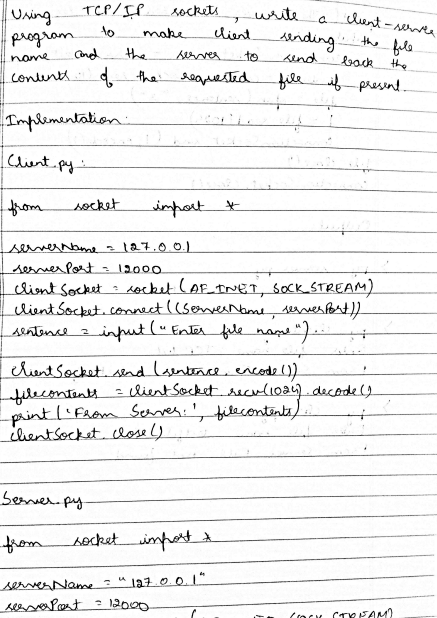 Using TCP/IP sockets, write a client-server
program to make client sending the file
name and the server to send back the
contents of the requested file if present.
Implementation:
Client.py:
from socket import *
serverName = 127.0.0.1
serverPort = 12000
clientSocket = socket (AF_INET, SOCK_STREAM)
clientSocket.connect((ServerName, serverPort))
sentence = input("Enter file name")
clientSocket.send (sentence.encode())
filecontents = clientSocket.recv(1024).decode()
print ('From Server:', filecontents)
clientSocket.close()
Server.py
from socket import *
serverName = "127.0.0.1"
serverPort = 12000
(SOCK_STREAM)